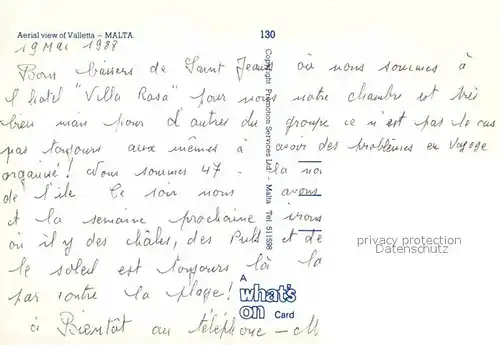 Aerial view of Valletta – MALTA.
130
19 Mai 1988
Bons baisers de Saint Jean où nous sommes à
l'hotel "Villa Rosa" pour nous notre chambre est très
bien mais pour d'autres du groupe ce n'est pas le cas
pas toujours aux mêmes à avoir des problèmes en voyage
organisé! Nous sommes 47 - la
de l'île Ce soir nous avons
et la semaine prochaine irons
où il y des châles, des Pulls et de
le soleil est toujours là la
par contre la plage!
à Bientôt au téléphone – M
Copyright Promotion Services Ltd – Malta Tel: 511598
privacy protection
Datenschutz
A
what's
on Card